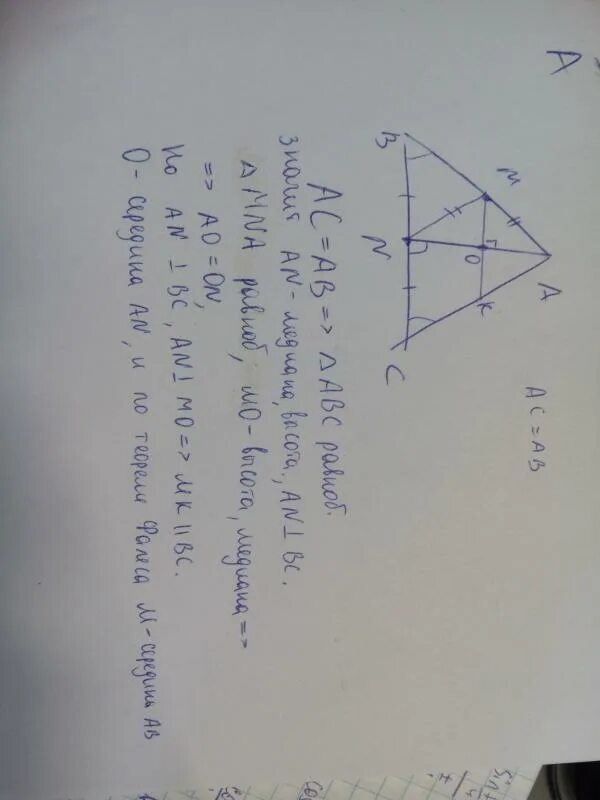 A
B
M
N
O
A
K
C
AC = AB
AC = AB => △ ABC равноб.
значит AN - медиана, высота, AN ⊥ BC.
△ MNA равноб, MO - высота, медиана =>
=> AO = ON,
Но AN ⊥ BC, AN ⊥ MO => MK || BC.
O - середина AN, и по теореме Фалеса M - середина AB